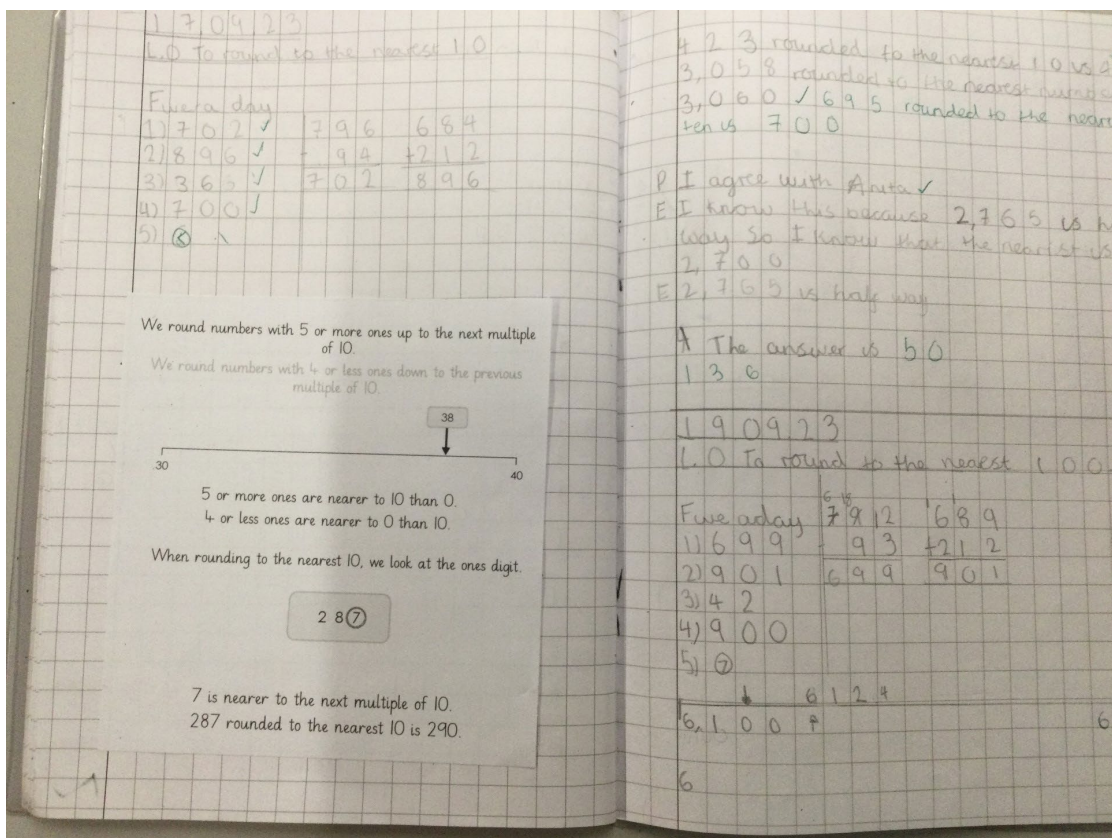 1 7 0 9 2 3
L.O To round to the nearest 10
Five a day
1) 7 0 2 ✓
2) 8 9 6 ✓
3) 3 6 ✓
4) 7 0 0 ✓
5) 8
7 9 6
- 9 4
7 0 2
6 8 4
+ 2 1 2
8 9 6
We round numbers with 5 or more ones up to the next multiple
of 10.
We round numbers with 4 or less ones down to the previous
multiple of 10.
38
30
40
5 or more ones are nearer to 10 than 0.
4 or less ones are nearer to 0 than 10.
When rounding to the nearest 10, we look at the ones digit.
2 8 7
7 is nearer to the next multiple of 10.
287 rounded to the nearest 10 is 290.
4 2 3 rounded to the nearest 10 is
3,058 rounded to the nearest
3,060 ✓ 695 rounded to the
ten is 700
P I agree with Anita ✓
E I know this because 2,765 is
way so I know that the nearist is
2,700
E 2,765 is half way
A The answer is 50
1 3 6
1 9 0 9 2 3
L.O To round to the nearest 100
Five aday
1) 6 9 9
2) 9 0 1
3) 4 2
4) 9 0 0
5) 7
6 18
7 9 12
- 9 3
6 9 9
6 8 9
+ 2 1 2
9 0 1
6 1 2 4
6,1 0 0
6
6